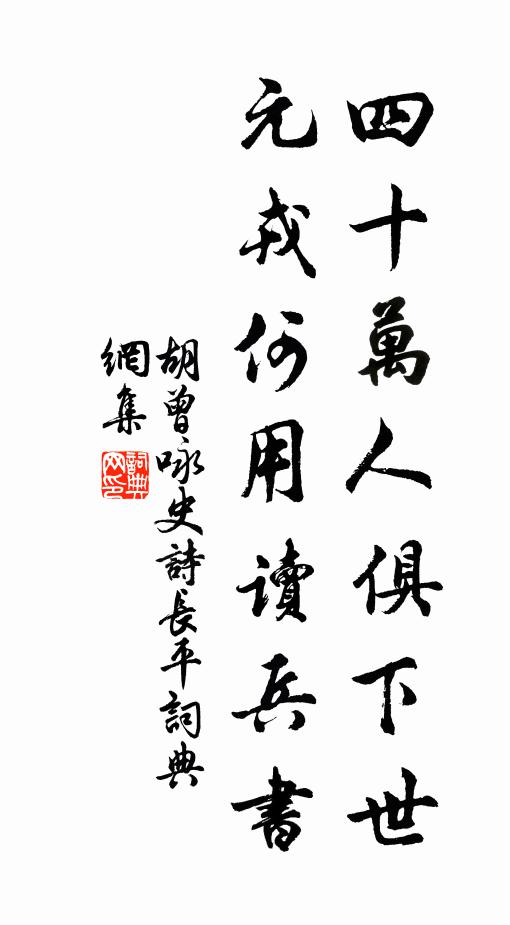 四十萬人俱下世
元戎何用讀兵書
胡曾咏史詩長平詞典
網集
詞典網印